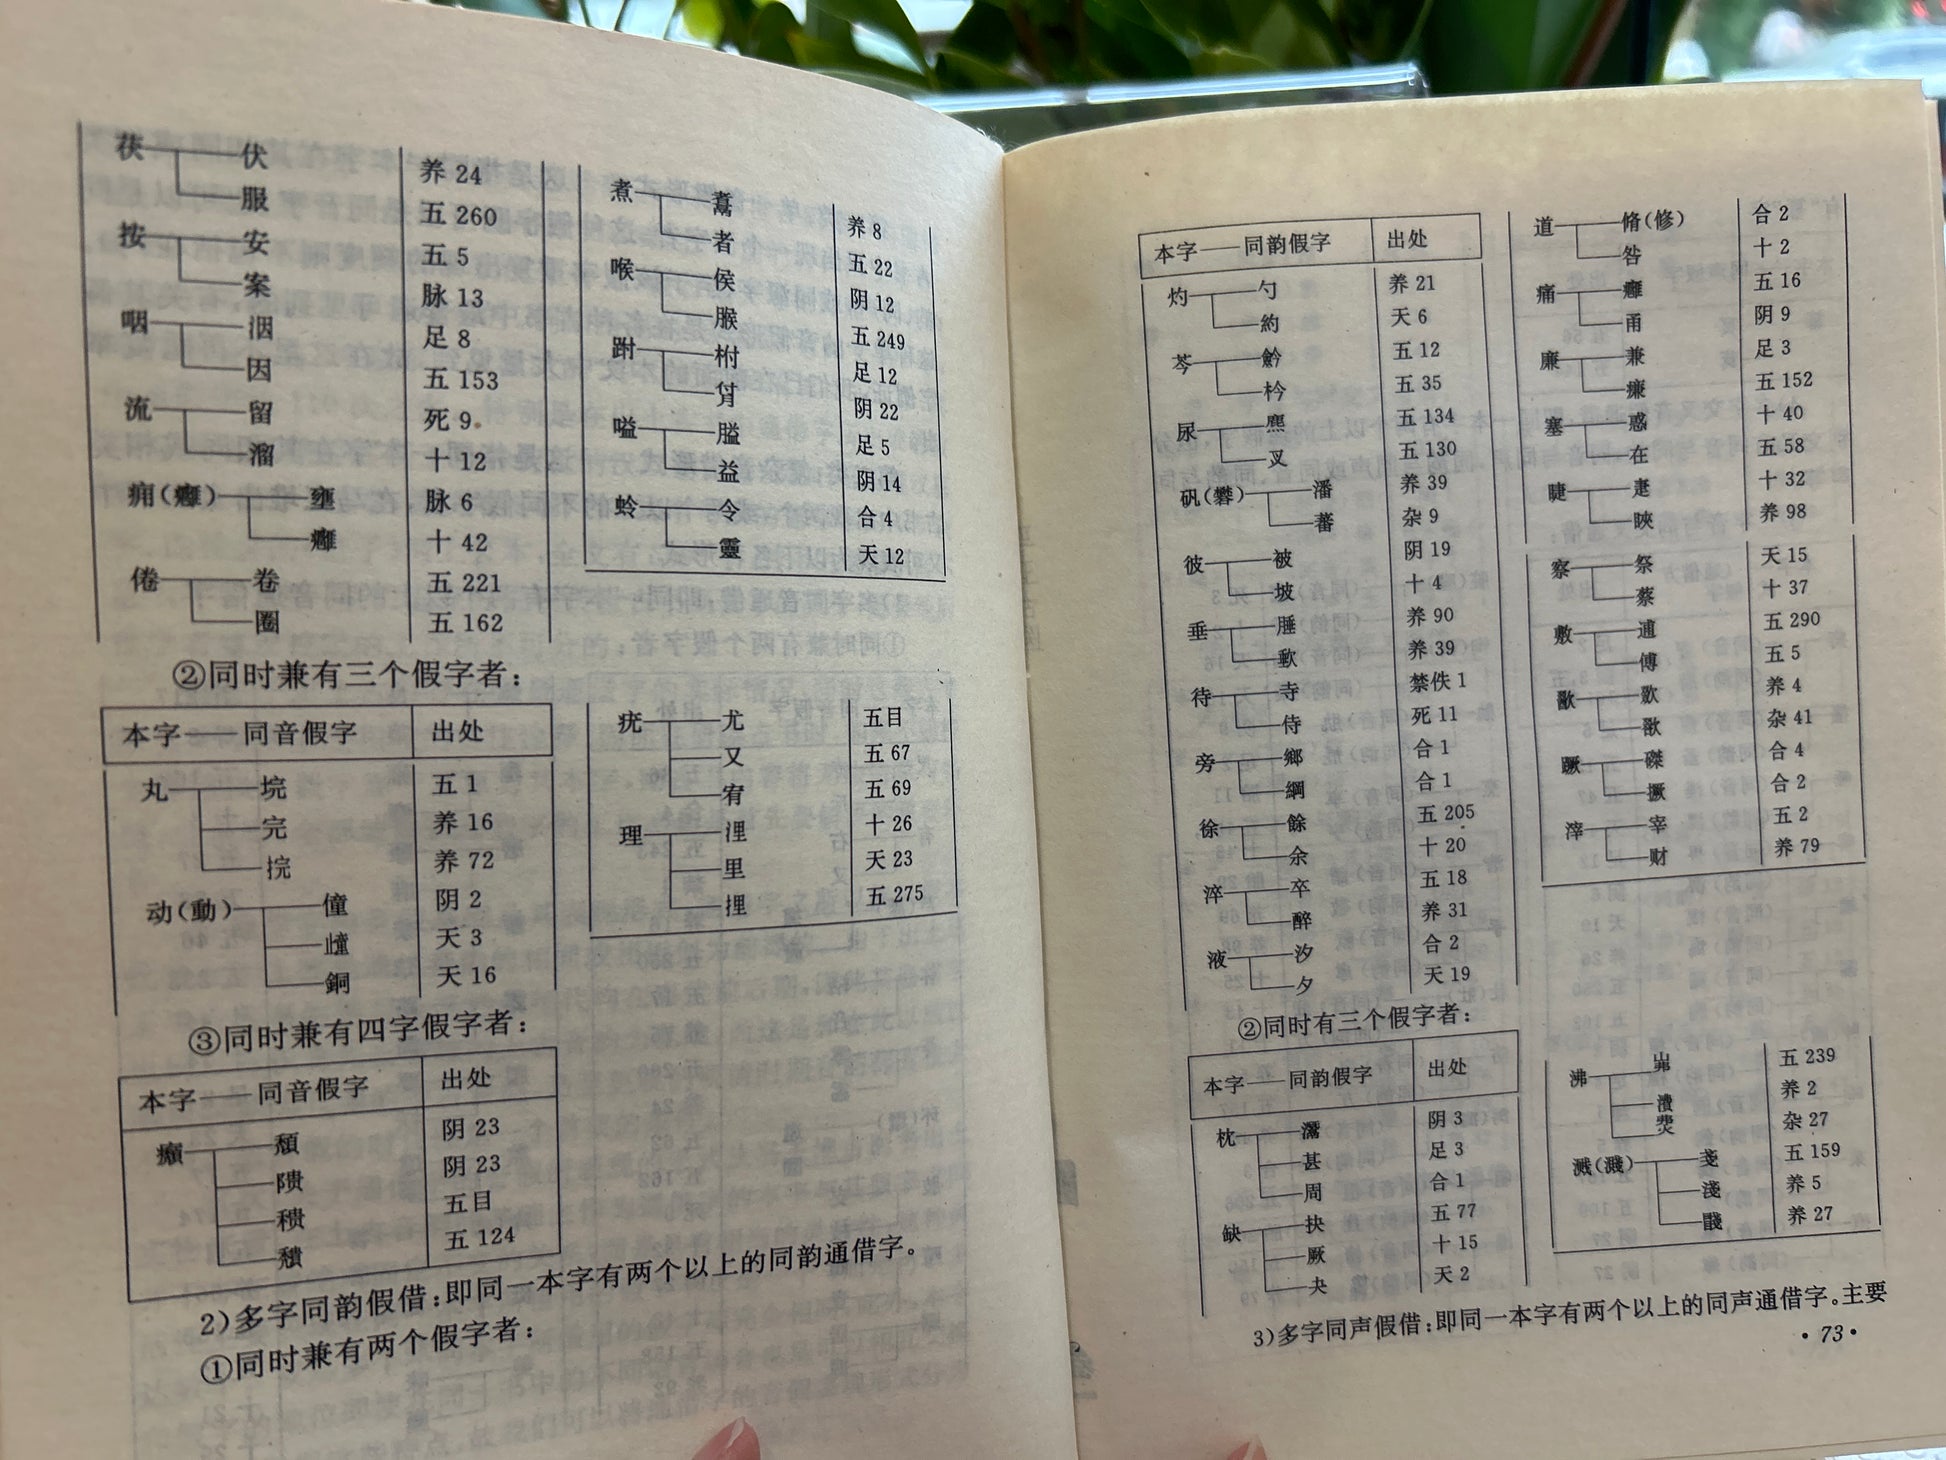 茯 伏 养 24
服 五 260
按 安 五 5
案 脉 13
咽 洇 足 8
因 五 153
流 留 死 9
溜 十 12
痈(癰) 壅 脉 6
癰 十 42
倦 卷 五 221
圈 五 162
煮 鬻 养 8
者 五 22
喉 侯 阴 12
五 249
跗 柎 足 12
阴 22
嗌 膉 足 5
益 阴 14
蛉 令 合 4
靈 天 12
②同时兼有三个假字者:
本字——同音假字 出处
丸 垸 五 1
完 养 16
捖 养 72
动(動) 僮 阴 2
天 3
銅 天 16
疣 尤 五目
又 五 67
宥 五 69
理 浬 十 26
里 天 23
捚 五 275
③同时兼有四字假字者:
本字——同音假字 出处
癩 頹 阴 23
隤 阴 23
穨 五目
五 124
2)多字同韵假借:即同一本字有两个以上的同韵通借字。
①同时兼有两个假字者:
本字——同韵假字 出处
灼 勺 养 21
約 天 6
芩 五 12
枔 五 35
尿 五 134
五 130
矾(礬) 潘 养 39
蕃 杂 9
彼 被 阴 19
坡 十 4
垂 腄 养 90
养 39
待 寺 禁佚 1
侍 死 11
旁 鄉 合 1
綱 合 1
徐 餘 五 205
余 十 20
淬 卒 五 18
醉 养 31
液 汐 合 2
夕 天 19
道 脩(修) 合 2
咎 十 2
痛 癰 五 16
甬 阴 9
廉 兼 足 3
五 152
塞 惑 十 40
在 五 58
睫 疌 十 32
养 98
察 祭 天 15
蔡 十 37
敷 五 290
傅 五 5
歃 养 4
杂 41
蹶 磔 合 4
撅 合 2
滓 宰 五 2
财 养 79
②同时有三个假字者:
本字——同韵假字 出处
枕 阴 3
甚 足 3
周 合 1
缺 抉 五 77
厥 十 15
夬 天 2
沸 五 239
漬 养 2
杂 27
溅(濺) 戔 五 159
淺 养 5
养 27
3)多字同声假借:即同一本字有两个以上的同声通借字。主要
·73·